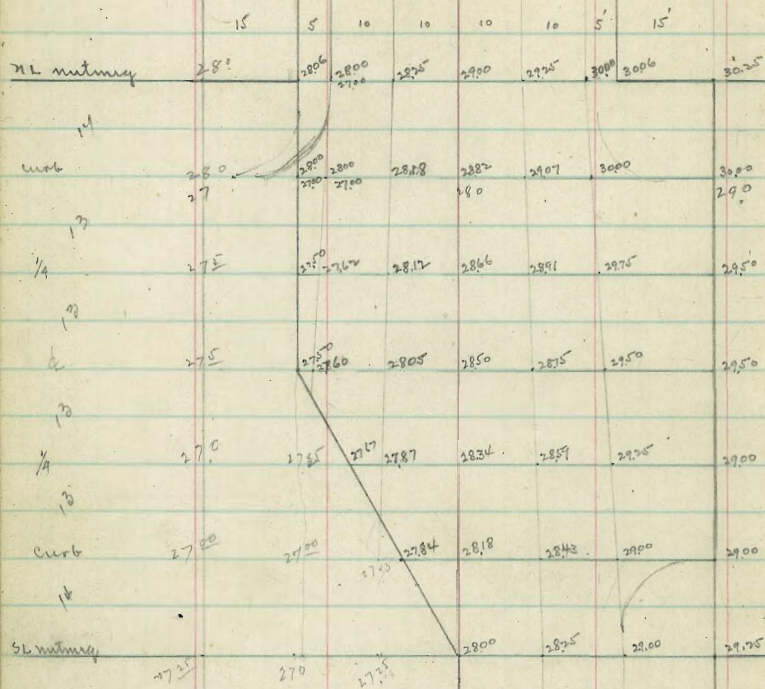 15 5 10 10 10 10 5' 15'
NL nutmeg 28.0 28.06 28.00 28.25 29.00 29.25 30.00 30.06 30.25
27.00
14
curb 28.0 28.00 28.00 28.18 28.82 29.07 30.00 30.00
27 27.00 27.00 28.0 29.0
13
1/4 27.5 27.50 27.62 28.12 28.66 28.91 29.75 29.50
13
27.5 27.50 27.60 28.05 28.50 28.75 29.50 29.50
13
1/4 27.0 27.67 27.87 28.34 28.59 29.25 29.00
13
Curb 27.00 27.00 27.84 28.18 28.43 29.00 29.00
14
SL nutmeg 28.00 28.25 29.00 29.25
27.25 27.0 27.25